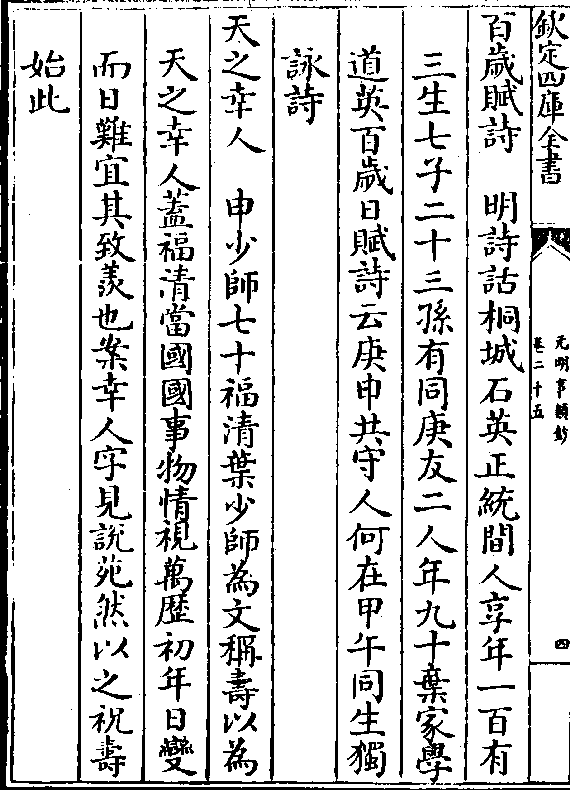 欽定四庫全書
元明事類鈔
卷二十五
四
百歲賦詩　明詩話桐城石英正統間人享年一百有
三生七子二十三孫有同庚友二人年九十棄家學
道英百歲日賦詩云庚申共守人何在甲午同生獨
詠詩
天之幸人　申少師七十福清葉少師為文稱壽以為
天之幸人蓋福清當國國事物情視萬歷初年日變
而日難宜其致羨也案幸人字見說苑然以之祝壽
始此